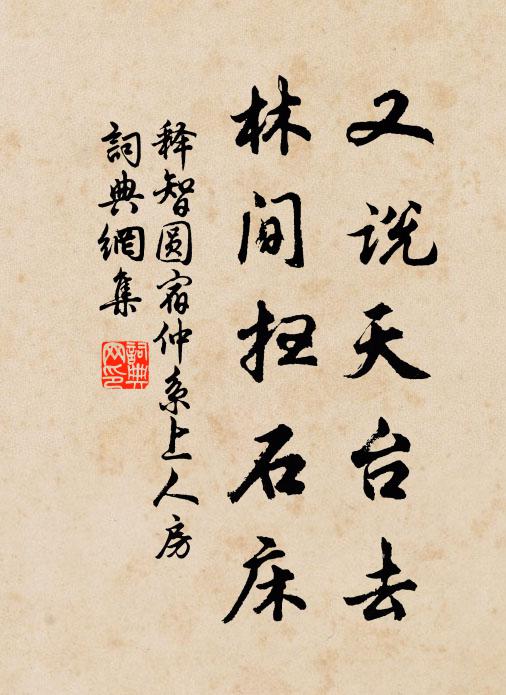 又说天台去
林间扫石床
释智圆宿仲系上人房
词典網集
詞典网印